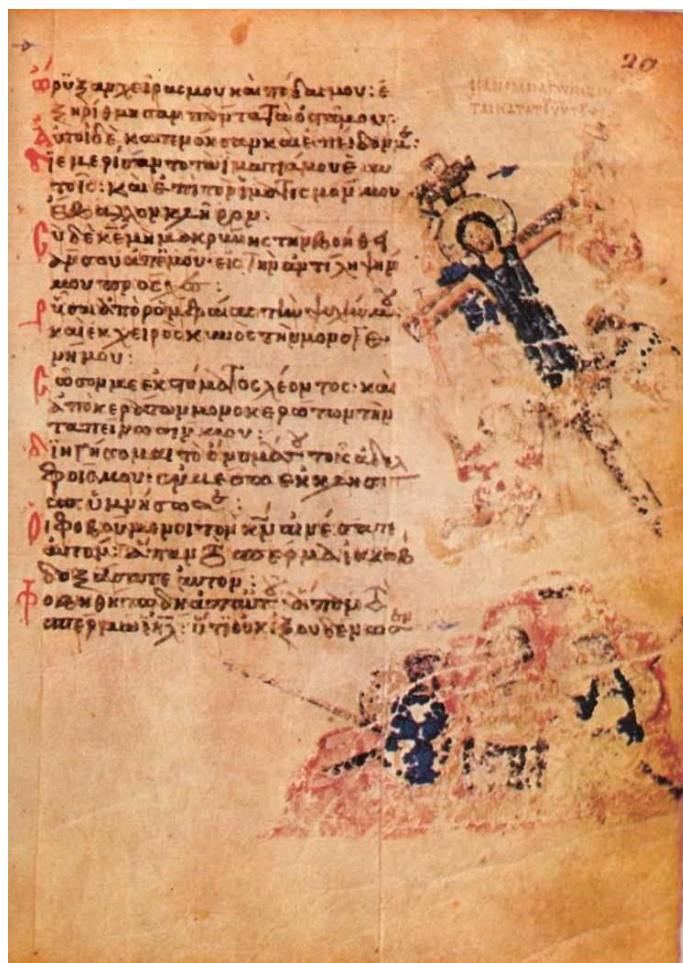 20
ὤρυξαν χεῖρας μου καὶ πόδας μου: ἐ
ξηρίθμησαν πάντα τὰ ὀστᾶ μου·
Αὐτοὶ δὲ κατενόησαν καὶ ἐπεῖδόν
Διεμερίσαντο τὰ ἱμάτιά μου ἑαυ
τοῖς: καὶ ἐπὶ τὸν ἱματισμόν μου
ἔβαλον κλῆρον:
Σὺ δὲ κε μὴ μακρύνῃς τὴν βοήθει
άν σου ἀπ' ἐμοῦ· εἰς τὴν ἀντίληψίν
μου πρόσχες:
Ῥῦσαι ἀπὸ ρομφαίας τὴν ψυχήν μου
καὶ ἐκ χειρὸς κυνὸς τὴν μονογε
νῆ μου:
Σῶσόν με ἐκ στόματος λέοντος· καὶ
ἀπὸ κεράτων μονοκερώτων τὴν
ταπείνωσίν μου:
Διηγήσομαι τὸ ὄνομά σου τοῖς ἀδελ
φοῖς μου· ἐν μέσω ἐκκλησί
ας ὑμνήσω σε:
Οἱ φοβούμενοι τὸν κν αἰνέσατε
αὐτόν: ἅπαν τὸ σπέρμα ἰακὼβ
δοξάσατε αὐτόν:
Φοβηθήτω δὴ ἀπ' αὐτοῦ ἅπαν τὸ
σπέρμα ιηλ: ὅτι οὐκ ἐξουδένωσεν